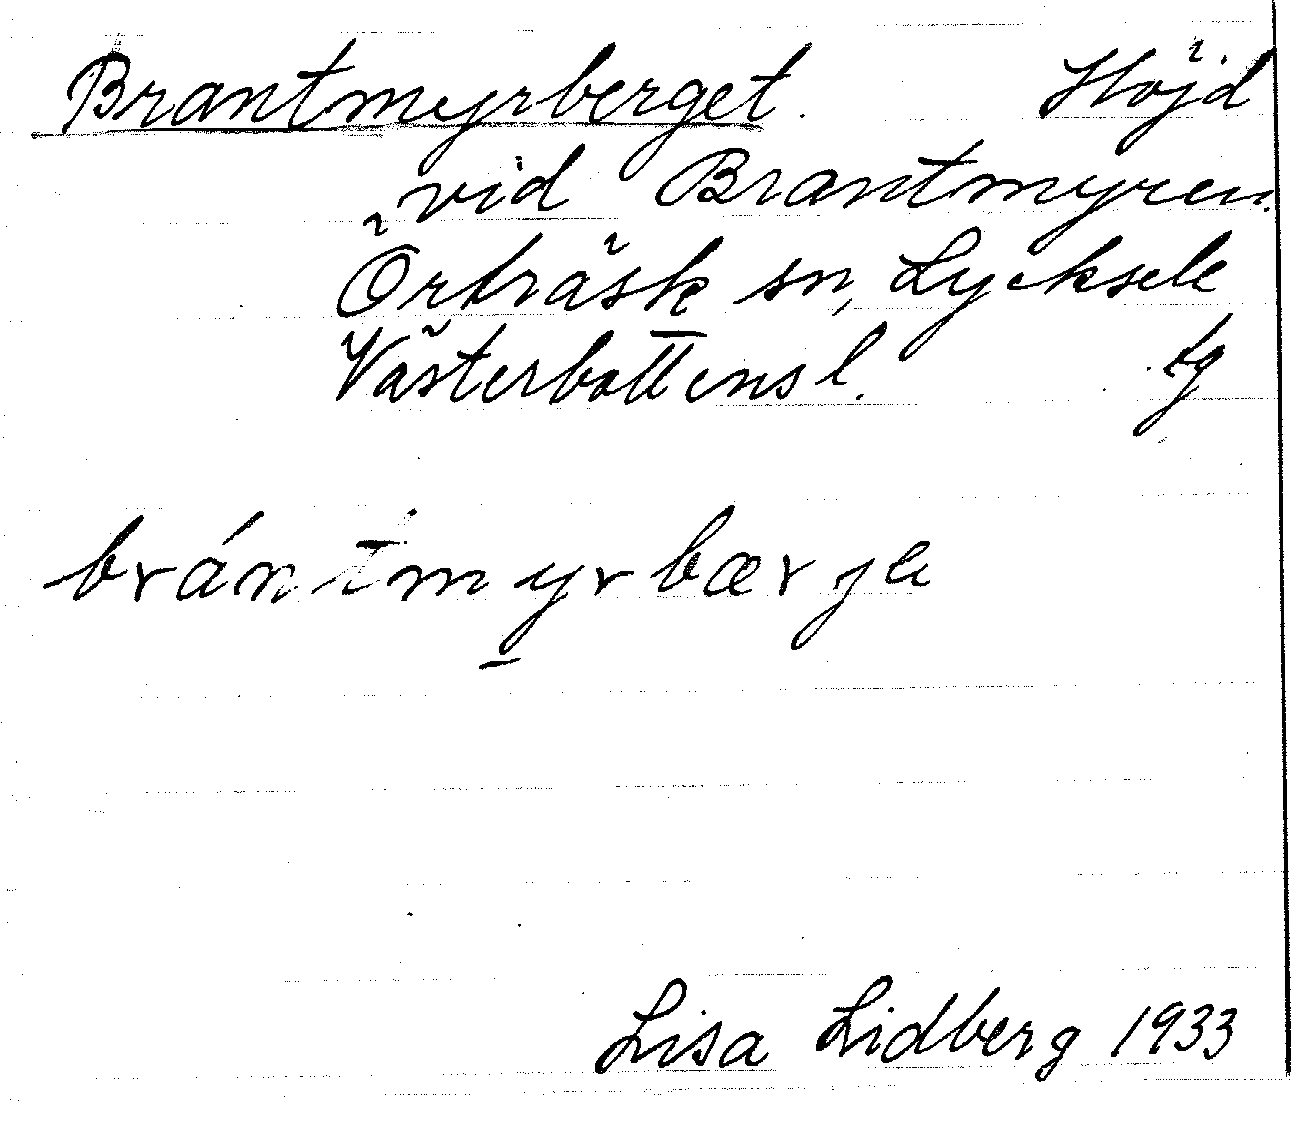 Brantmyrberget. Höjd
vid Brantmyren.
Örträsk sn, Lycksele
Västerbottens l. tg
brántmyrbærja
Lisa Lidberg 1933